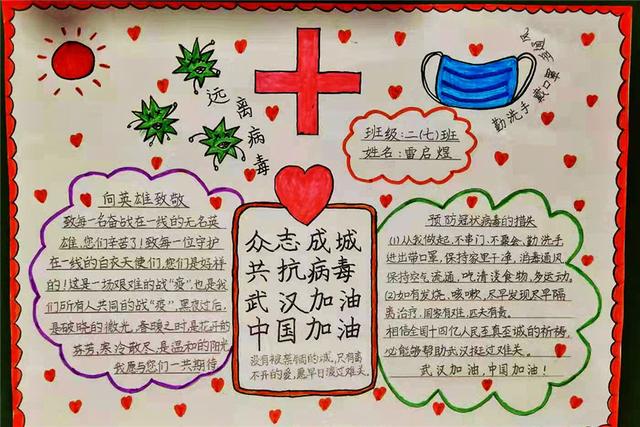 远离病毒
勤洗手 戴口罩
班级:二(七)班
姓名:雷启煜
向英雄致敬
致每一名奋战在一线的无名英
雄,您们辛苦了!致每一位守护
在一线的白衣天使们,您们是好样
的!这是一场艰难的战“疫”也是我
们所有人共同的战“疫”,黑夜过后,
是破晓的微光,春暖之时是花开的
芬芳,寒冷散尽,是温和的阳光
我愿与您们一共期待
众志成城
共抗病毒
武汉加油
中国加油
没有被禁锢的城,只有离
不开的爱,愿早日渡过难关。
预防冠状病毒的措失
(1)从我做起,不串门,不聚会,勤洗手
进出带口罩,保持家里干净,消毒通风
保持空气流通,吃清谈食物,多运动。
(2)如有发烧,咳嗽,尽早发现尽早隔
离治疗,国家有难,匹夫有责。
相信全国十四亿人民至真至诚的祈祷,
必能够帮助武汉挺过难关。
武汉加油,中国加油!